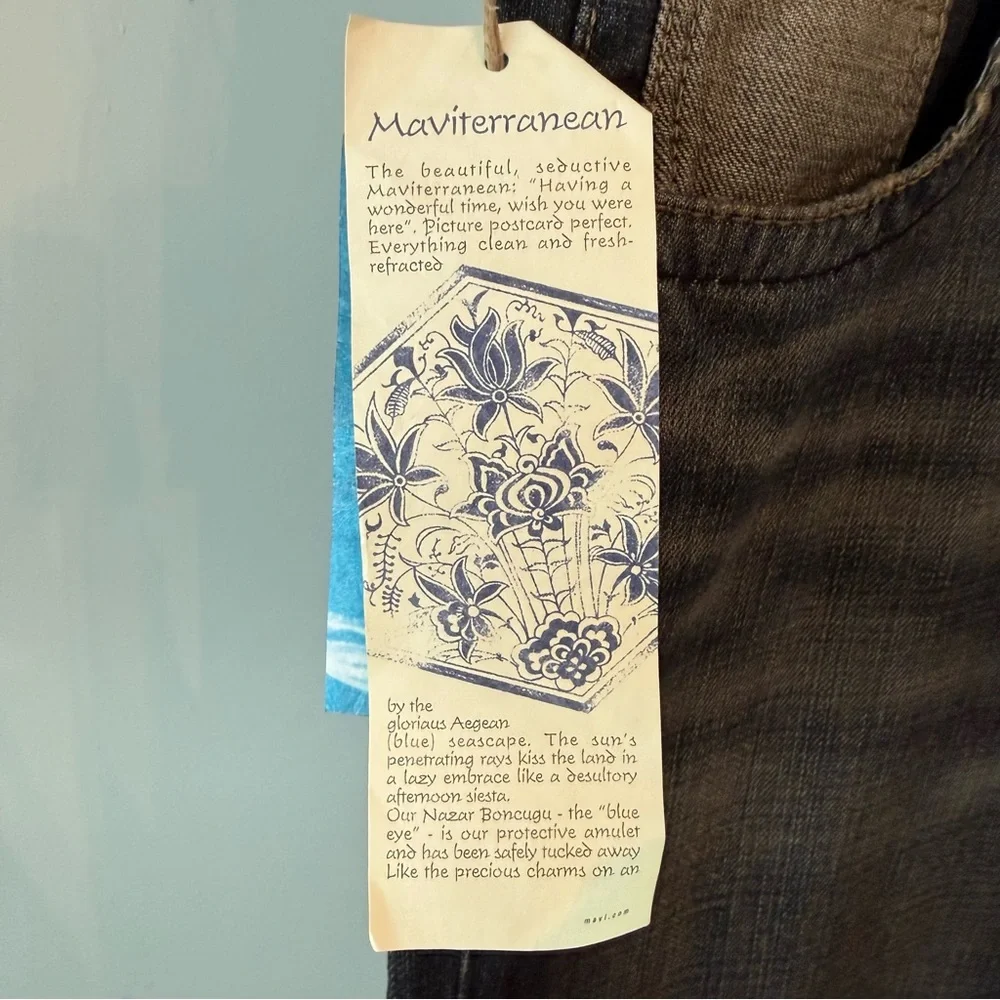 Maviterranean
The beautiful, seductive
Maviterranean: "Having a
wonderful time, wish you were
here". Picture postcard perfect.
Everything clean and fresh-
refracted
by the
glorious Aegean
(blue) seascape. The sun's
penetrating rays kiss the land in
a lazy embrace like a desultory
afternoon siesta.
Our Nazar Boncugu - the "blue
eye" - is our protective amulet
and has been safely tucked away
Like the precious charms on an
mavi.com